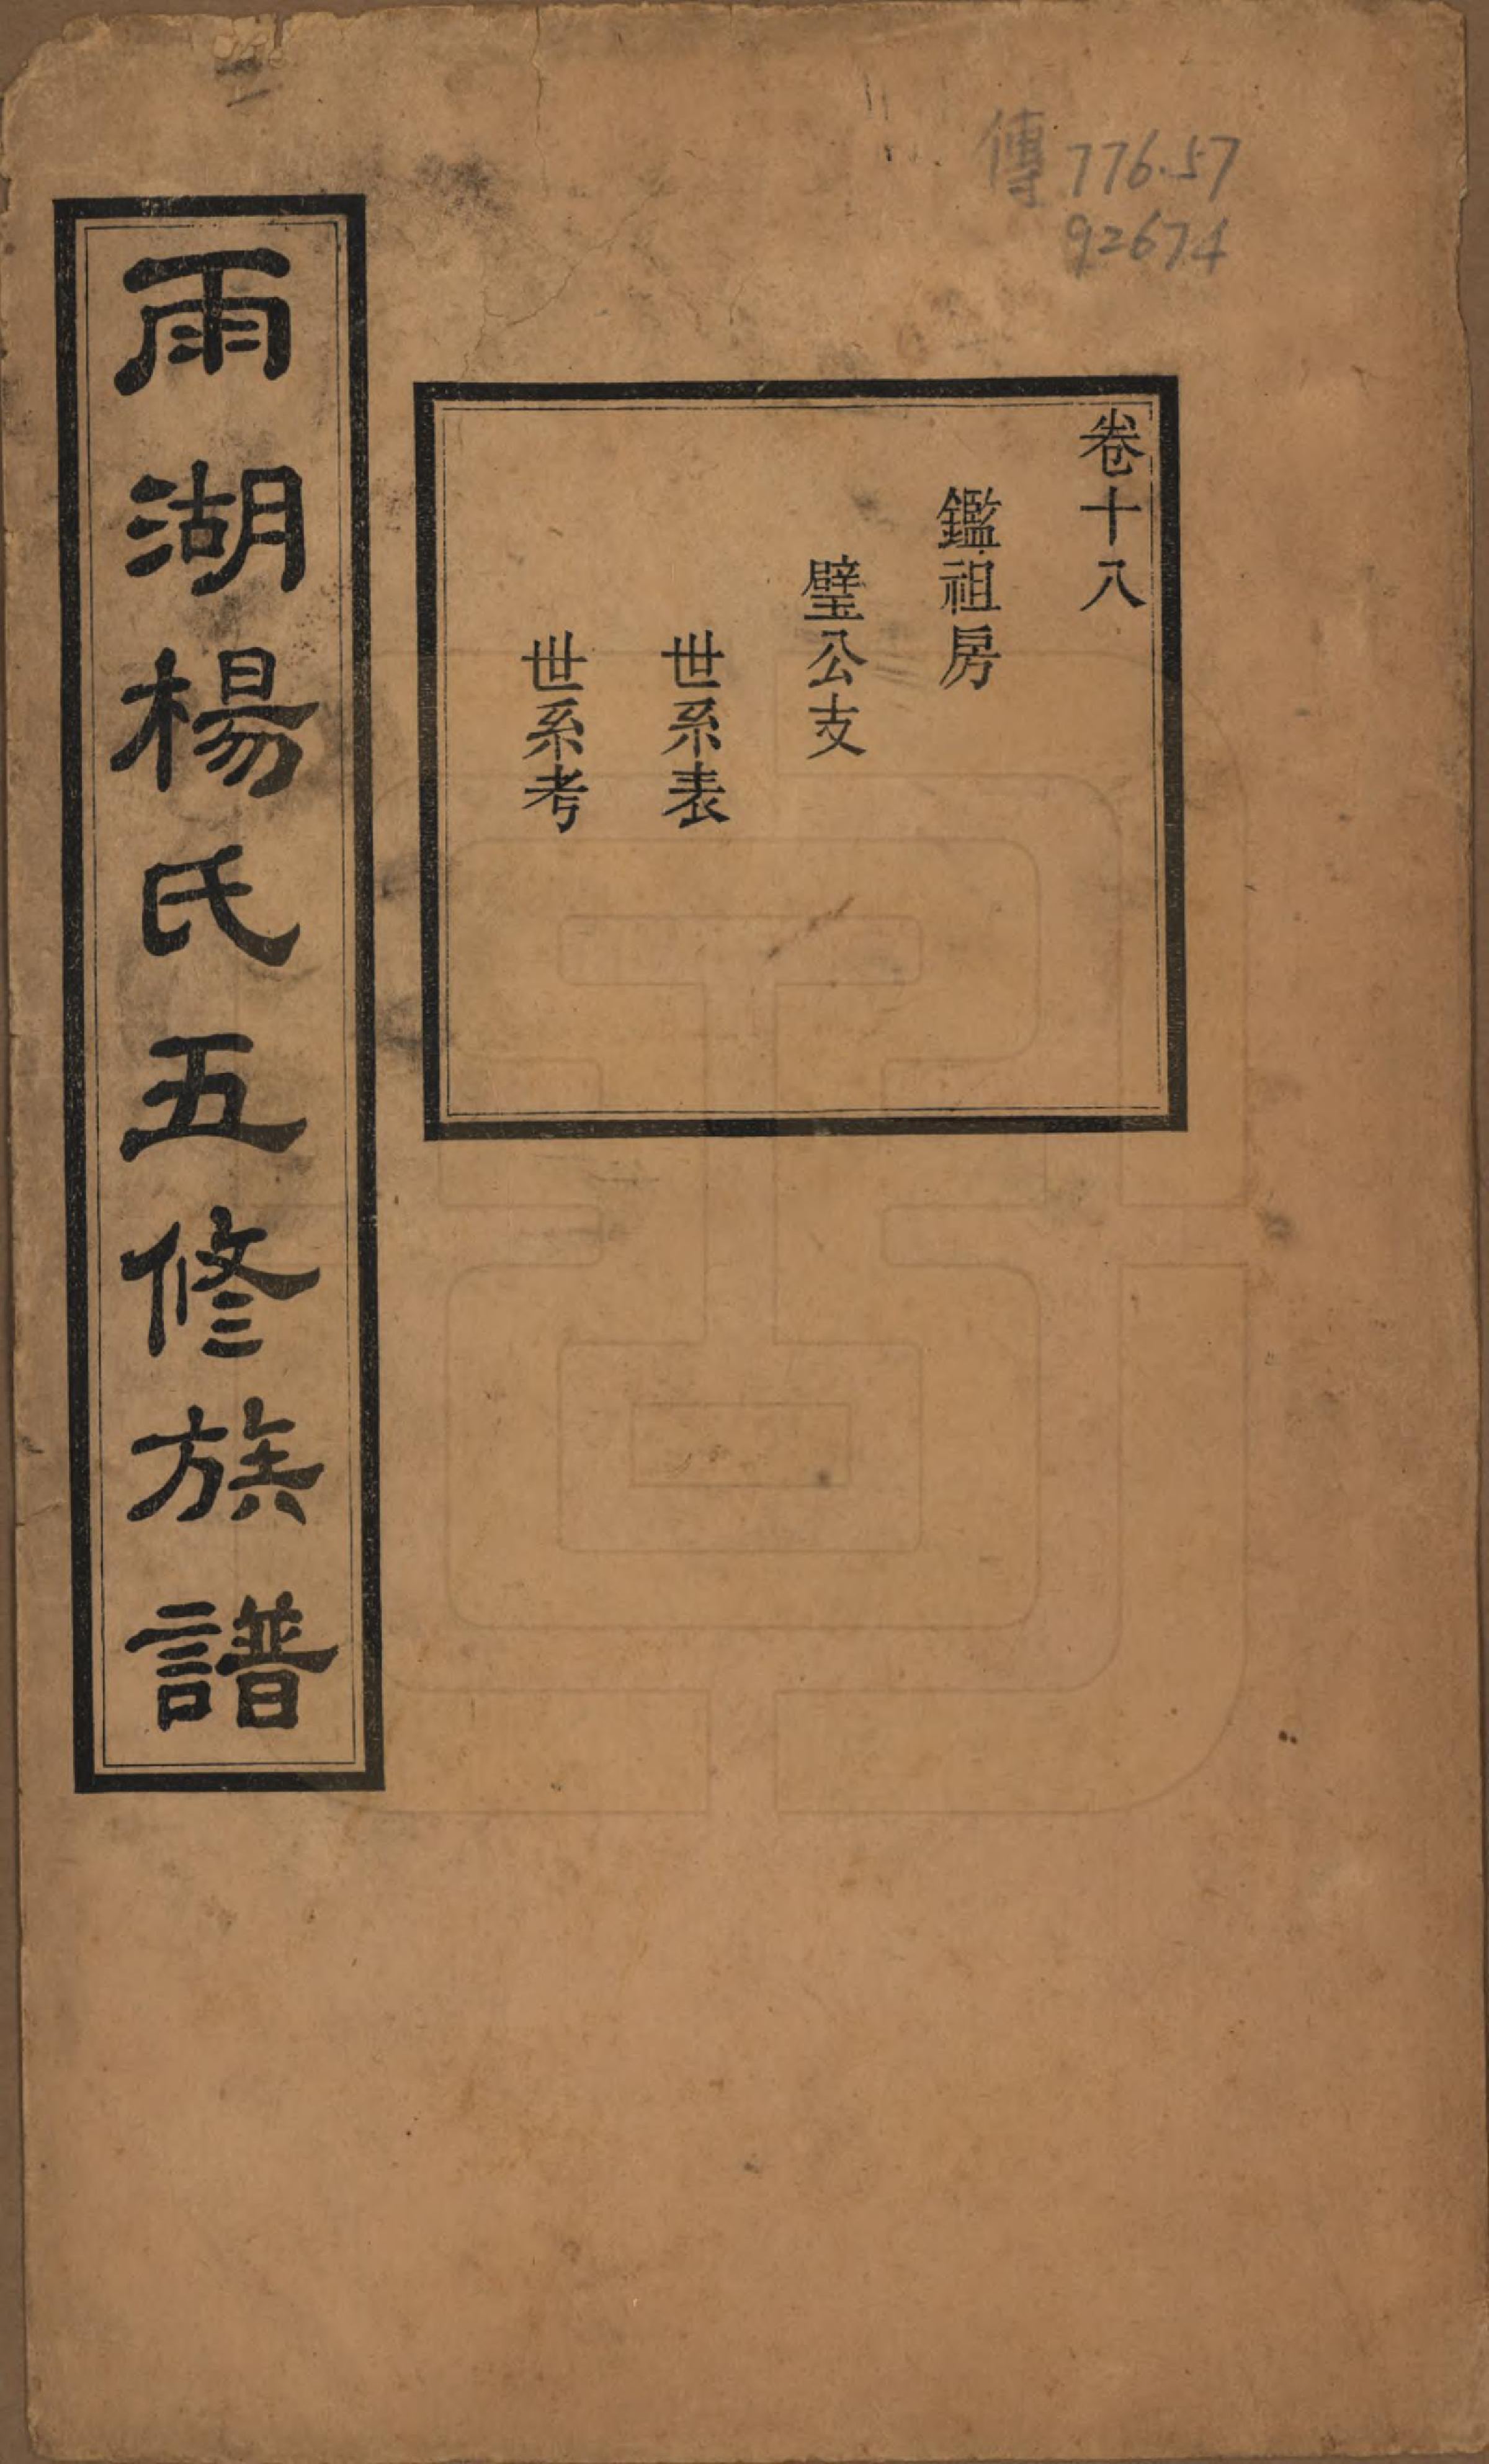 傳 776.57
92674
卷十八
鑑祖房
璧公支
世系表
世系考
雨湖楊氏五修族譜